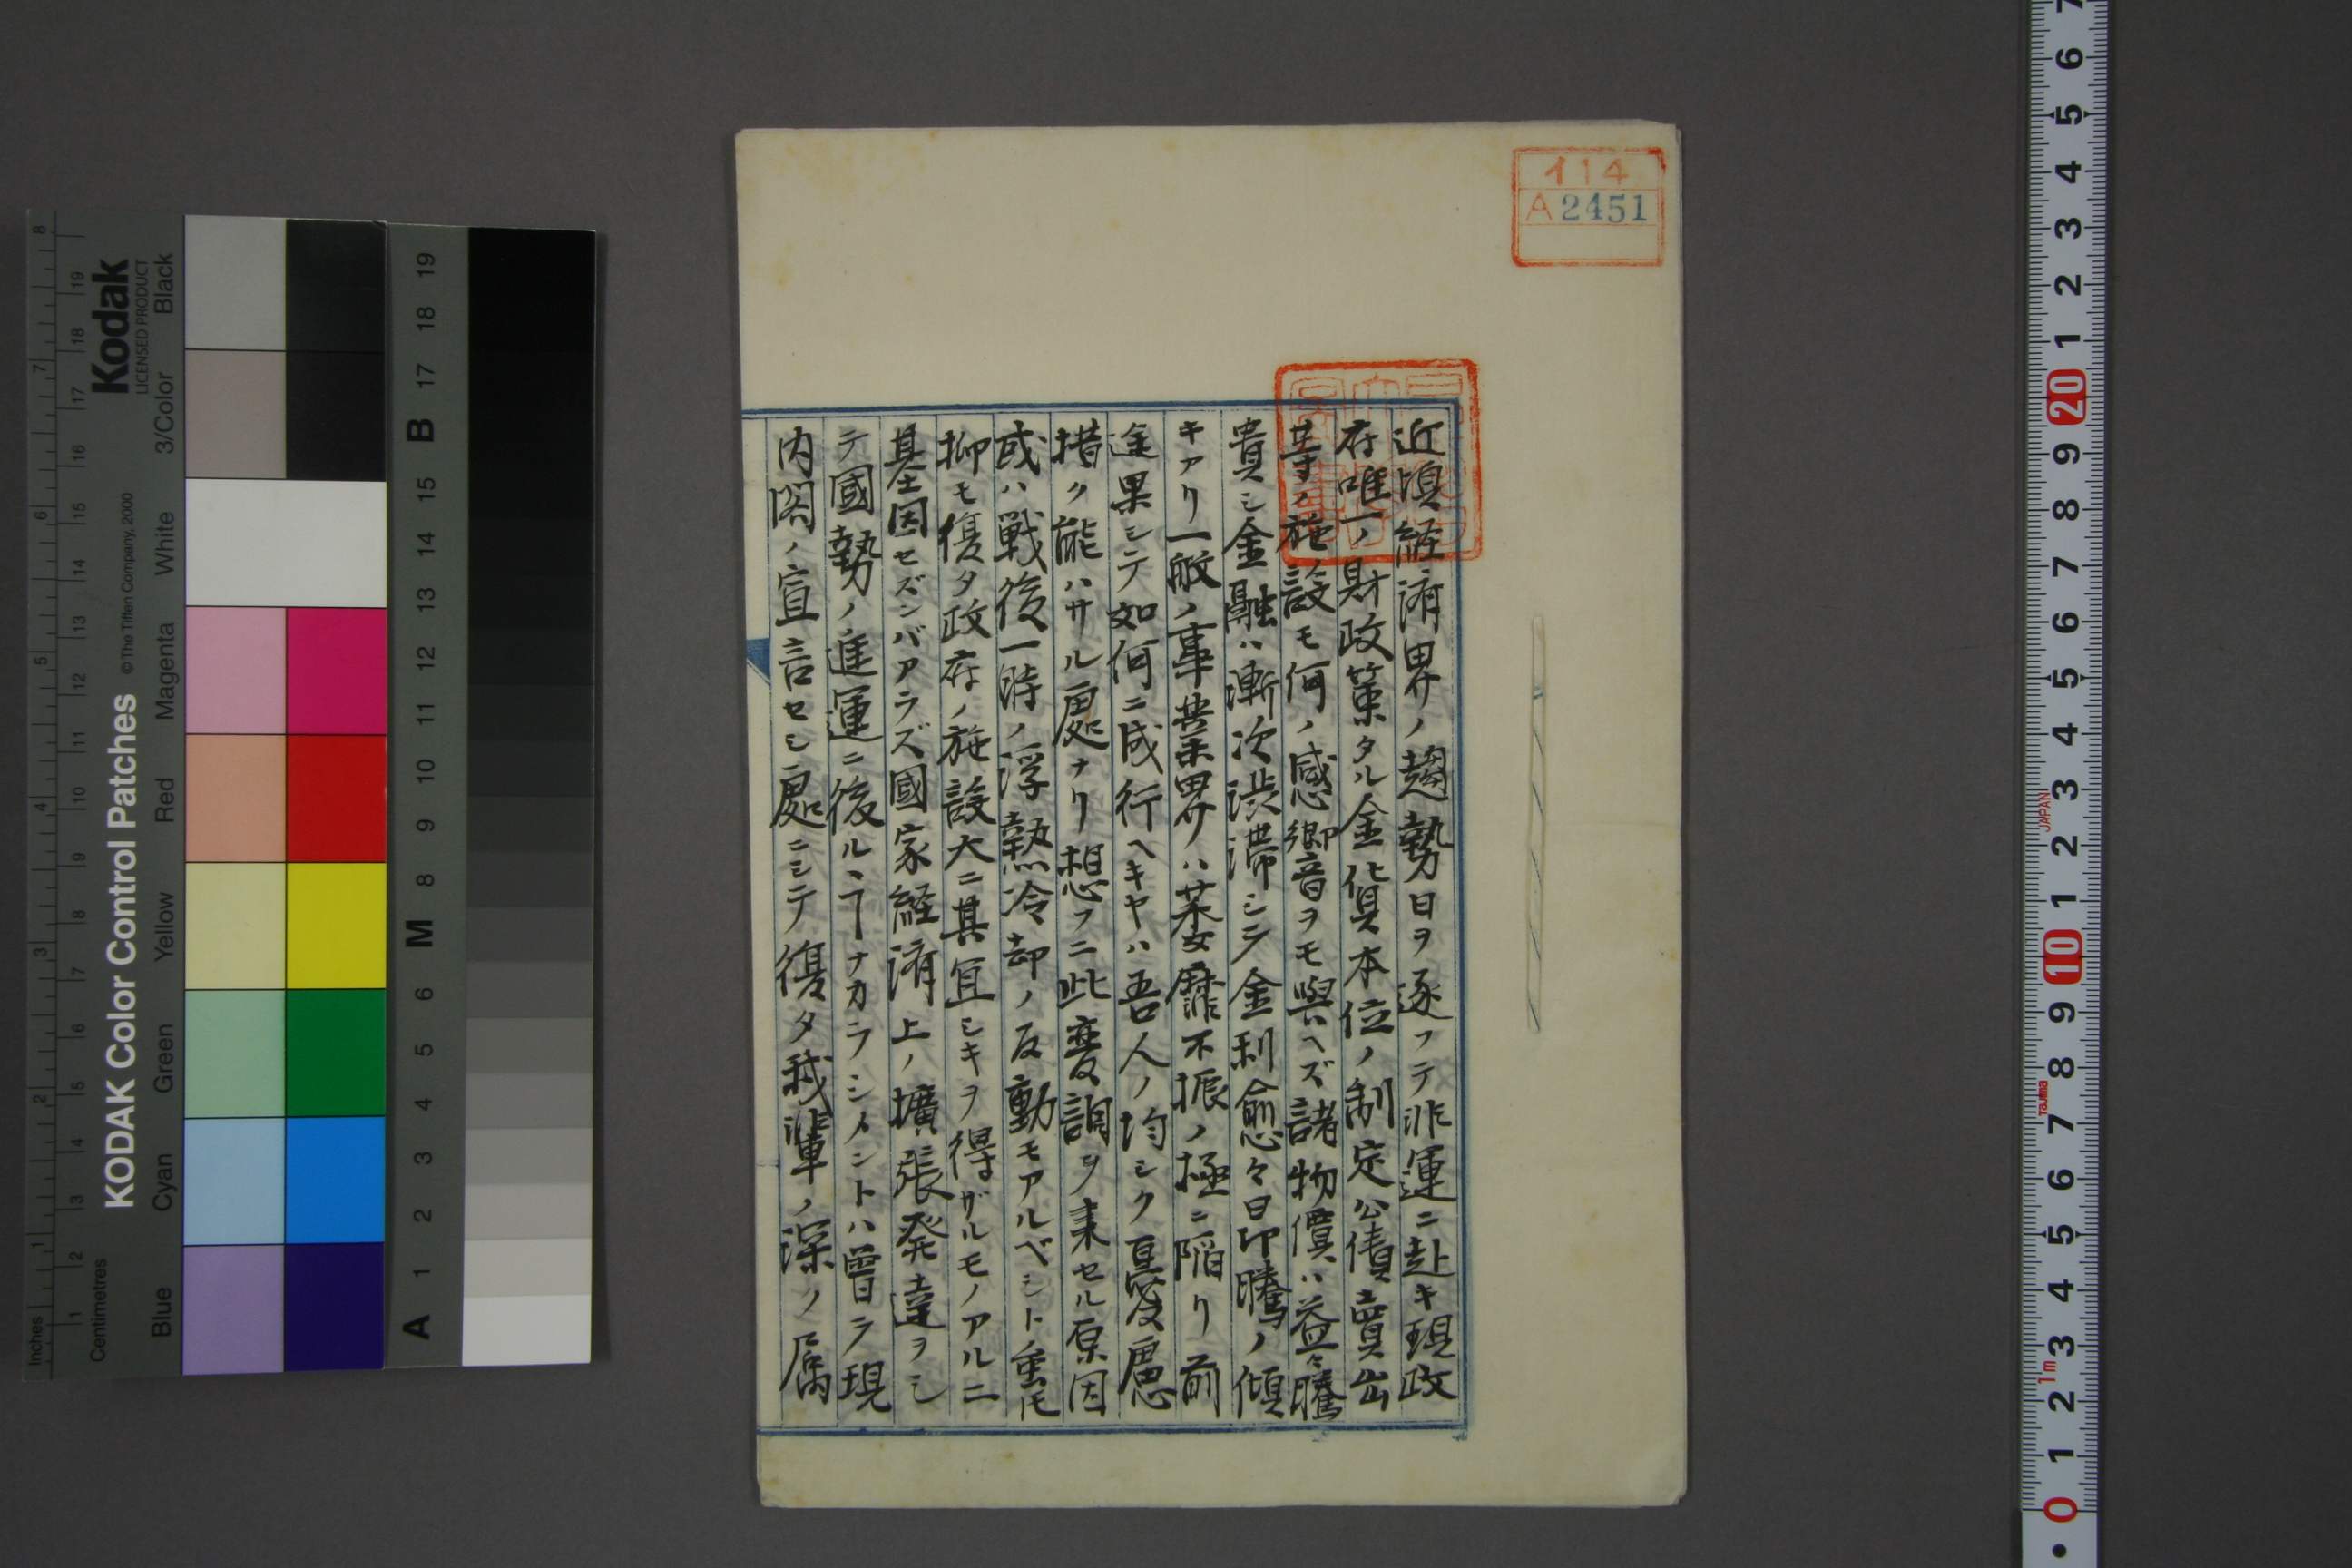 イ14
A2451
近頃経済界ノ趨勢日ヲ逐フテ非運ニ赴キ現政
府唯一ノ財政策タル金貨本位ノ制定公債賣出
等ノ施設モ何ノ感響ヲモ與ヘズ諸物價ハ益々騰
貴シ金融ハ漸次渋滞シテ金利愈々日印騰ノ傾
キアリ一般ノ事業界ハ萎靡不振ノ極ニ陥リ前
途果シテ如何ニ成行ヘキヤハ吾人ノ均シク憂慮
措ク能ハサル處ナリ想フニ此変調ヲ来セル原因
或ハ戦後一時ノ浮熱冷却ノ反動モアルベシト雖モ
抑モ復タ政府ノ施設大ニ其宜シキヲ得ザルモノアルニ
基因セズンバアラズ國家経済上ノ擴張発達ヲシ
テ國勢ノ進運ニ後ルヽヿナカラシメントハ曽ラ現
内閣ノ宣言セシ處ニシテ復タ我輩ノ深ク属
Kodak
LICENSED PRODUCT
KODAK Color Control Patches
© The Tiffen Company, 2000
Inches
Centimetres
Blue Cyan Green Yellow Red Magenta White 3/Color Black
A 1 2 3 4 5 6 M 8 9 10 11 12 13 14 15 B 17 18 19
JAPAN
Tajima
1m